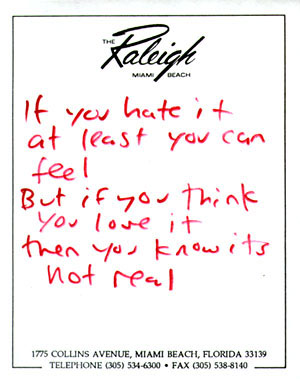 THE
Raleigh
MIAMI BEACH
If you hate it
at least you can
feel
But if you think
you love it
then you know its
not real
1775 COLLINS AVENUE, MIAMI BEACH, FLORIDA 33139
TELEPHONE (305) 534-6300 • FAX (305) 538-8140